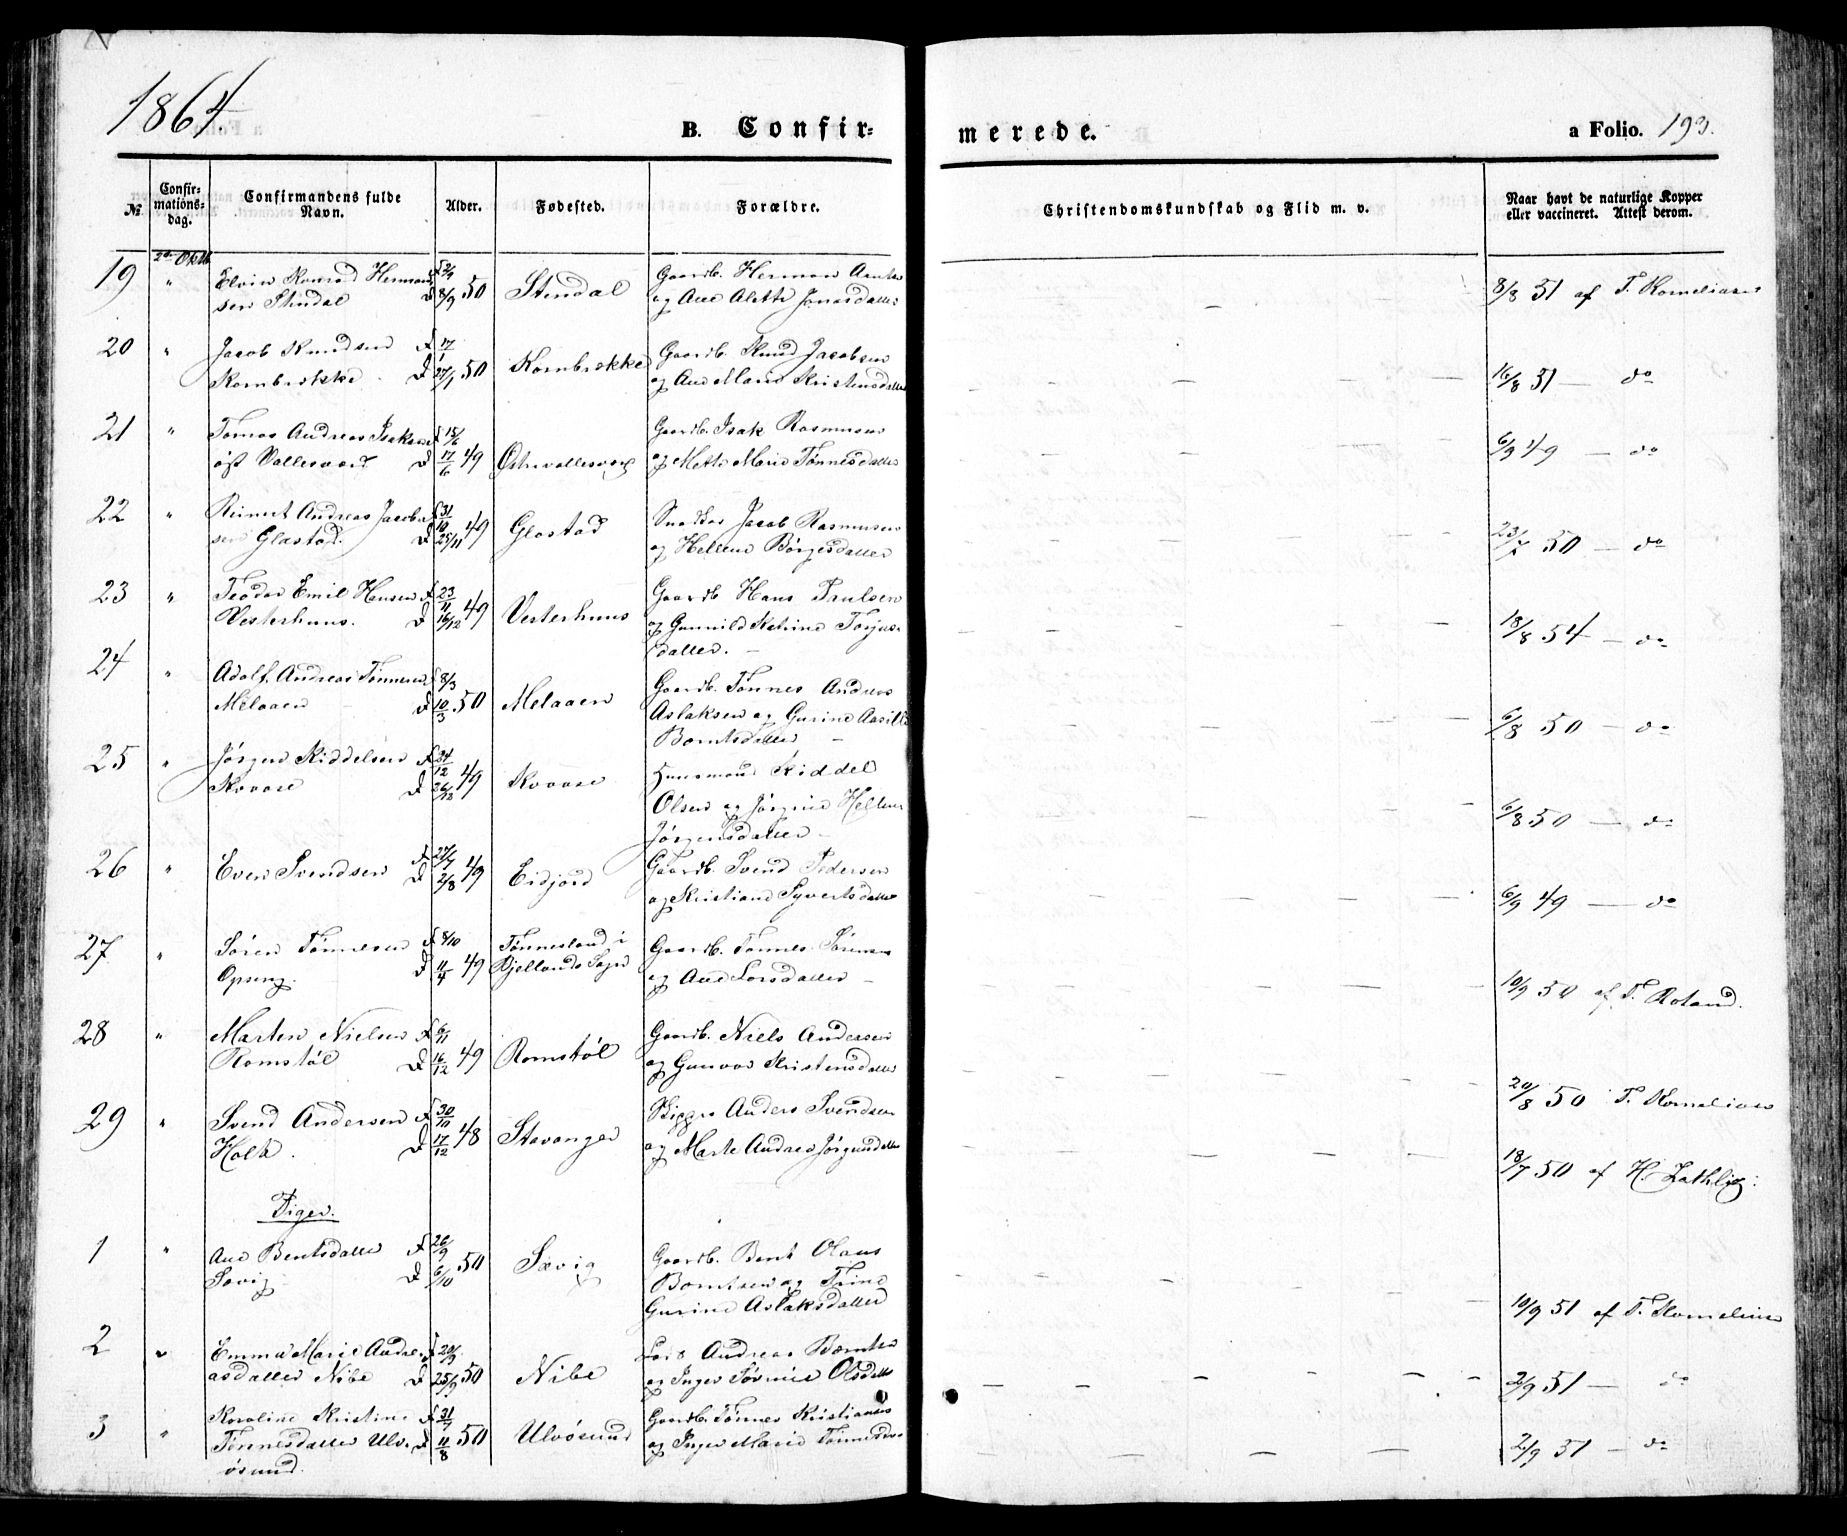 1864
B. Confir-
merede.
a Folio. 193.
№
Confir-
mations-
dag.
Confirmandens fulde
Navn.
Alder.
Fødested.
Forældre.
Christendomskundskab og Flid m. v.
Naar havt de naturlige Kopper
eller vaccineret. Attest derom.
19 2den Oktb
" Elvin Konrad Herman- f 2/9
sen Stendal d 8/9 50 Stendal Gaardb. Herman
og Ane Alette Jonasdatter
8/8 51 af T. Korneliusen
20 " Jacob Knudsen f 17/1
Kornbrække d 27/1 50 Kornbrække Gaardb. Knud Jacobsen
og Ane Marie Kristensdatter
16/8 51 — do
21 " Tomas Andreas Isaksen f 15/6
øst Vallesværd d 17/6 49 Østrevallesverd Gaardb. Isak Rasmusen
og Mette Marie Tønnesdatter
6/9 49 — do
22 " Reinert Andreas Jacob- f 31/10
sen Glastad. d 25/11 49 Glastad Snedker Jacob Rasmusen
og Hellene Børgesdatter
50 — do
23 " Teodor Emil Hansen f 23/11
Vesterhuus. d 16/12 49 Vesterhuus Gaardb Hans Paulsen
og Gunnild Katrine Torjus-
datter. —
18/8 54 — do
24 " Adolf Andreas Tønnesen f 8/3
Melaaen d 10/3 50 Melaaen Gaardb. Tønnes Andreas
Aslaksen og Gurine Aasille
Berntsdatter —
6/8 50 — do
25 " Jørgen Kiddelsen f 24/12
Kvaase d 26/12 49 Kvaase Huusmand Kiddel
Olsen og Jørgine Hellene
Jørgensdatter —
6/8 50 — do
26 " Even Svendsen f 27/7
d 2/8 49 Eidjord Gaardb. Svend Pedersen
og Kristiane Syvertsdatter
6/9 49 — do
27 " Søren Tønnesen f 8/10
Opseng. d 11/4 49 Tønnesland i
Bjellands Sogn Gaardb. Tønnes Sørensen
og Ane Larsdatter —
10/9 50 af T. Roland.
28 " Marten Nielsen f 6/11
Romstøl d 16/12 49 Romstøl Gaardb. Niels Andersen
og Gunvor Kristensdatter
20/8 50 T. Korneliusen
29 " Svend Andersen f 30/10
Holk. d 17/12 48 Stavanger Anders Svendsen
og Marte Andrea Jørgensdatter
18/7 50 af H.
Piger.
1 " Ane Bentsdatter f 26/9
Sævig d 6/10 50 Sævig Gaardb. Bent Olaus
Berntsen og Trine
Gurine Aslaksdatter
10/9 51 af T. Korneliusen
2 " Emma Marie Andre- f 20/9
asdatter Nibe d 25/9 50 Nibe Lars Andreas Berntsen
og Inger Sørine Olsdatter
2/9 51 — do
3 " Karoline Kristine f 31/7
Tønnesdatter Ulv- d 11/8 50 Ulvøsund Gaardb. Tønnes Kristiansen
øsund. og Inger Marie Tønnesd.
2/9 51 — do